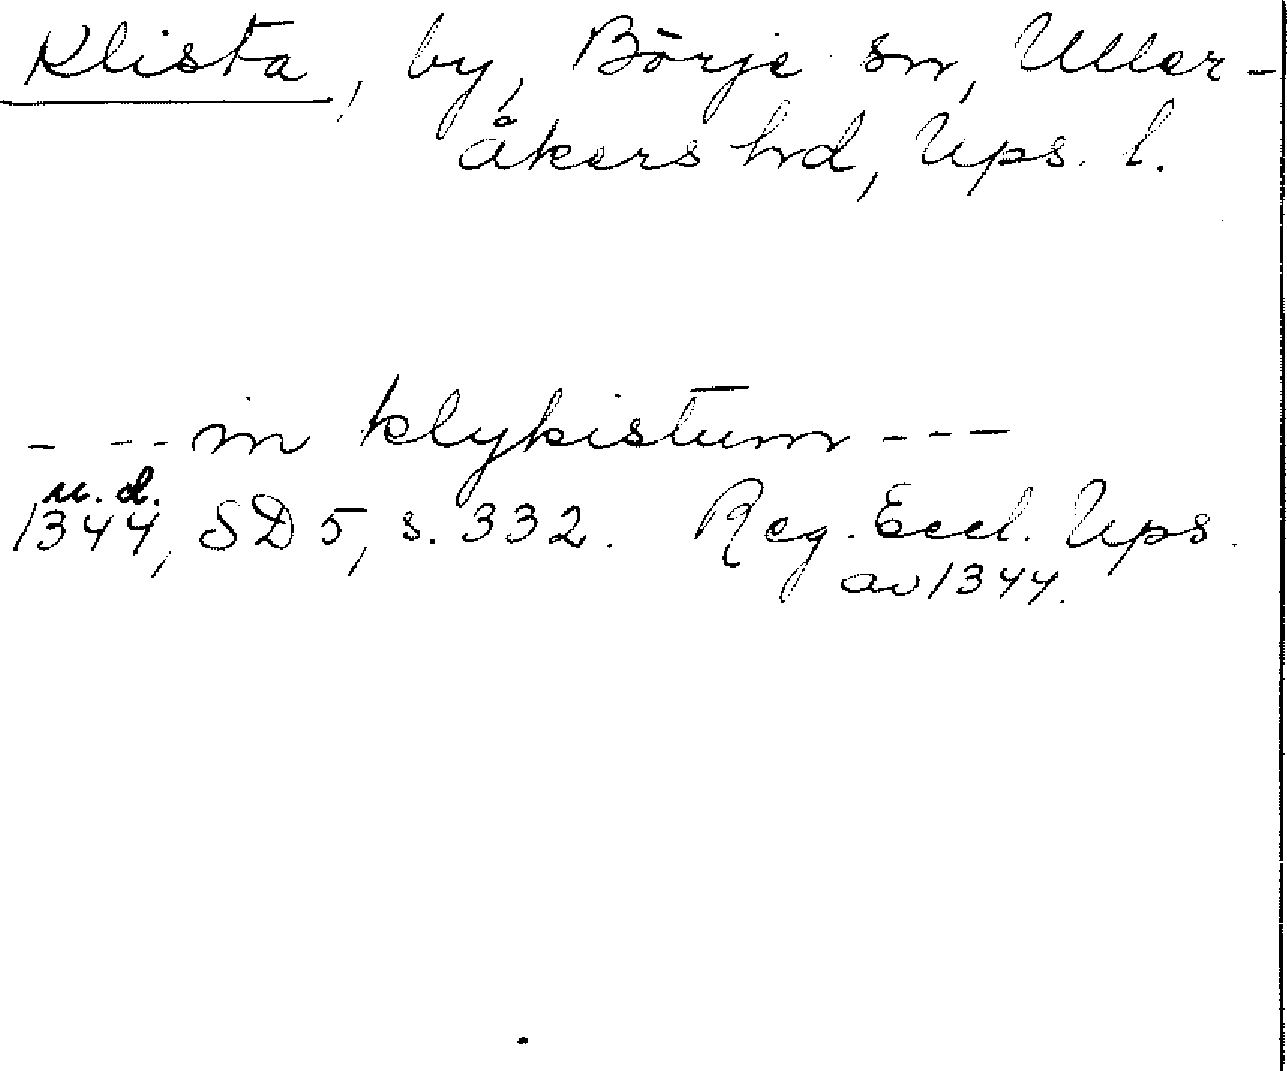 Klista, by, Börje sn, Uller-
åkers hrd, Ups. l.
- - - in klykistum - - -
u. d.
1344, SD 5, s. 332. Reg. Eccl. Ups.
av 1344.